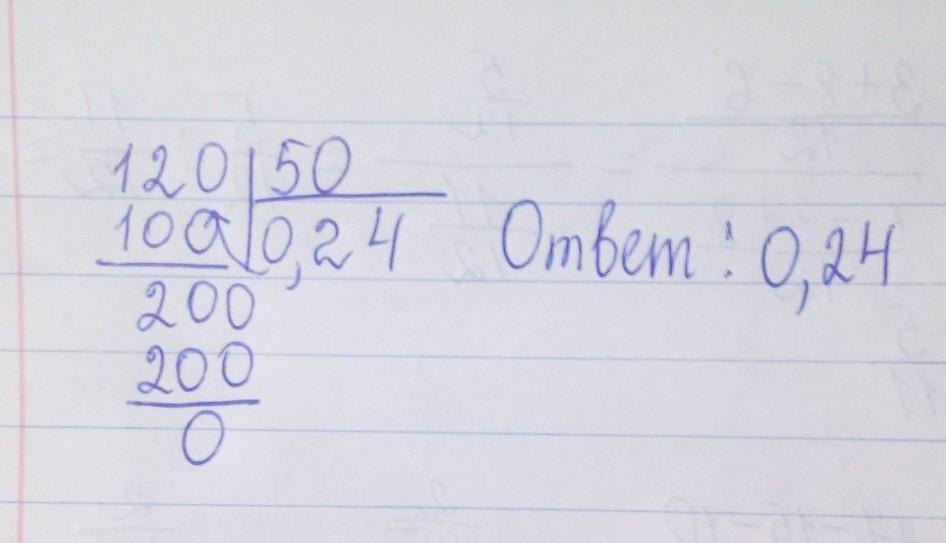 120 50
100 0,24 Ответ: 0,24
200
200
0